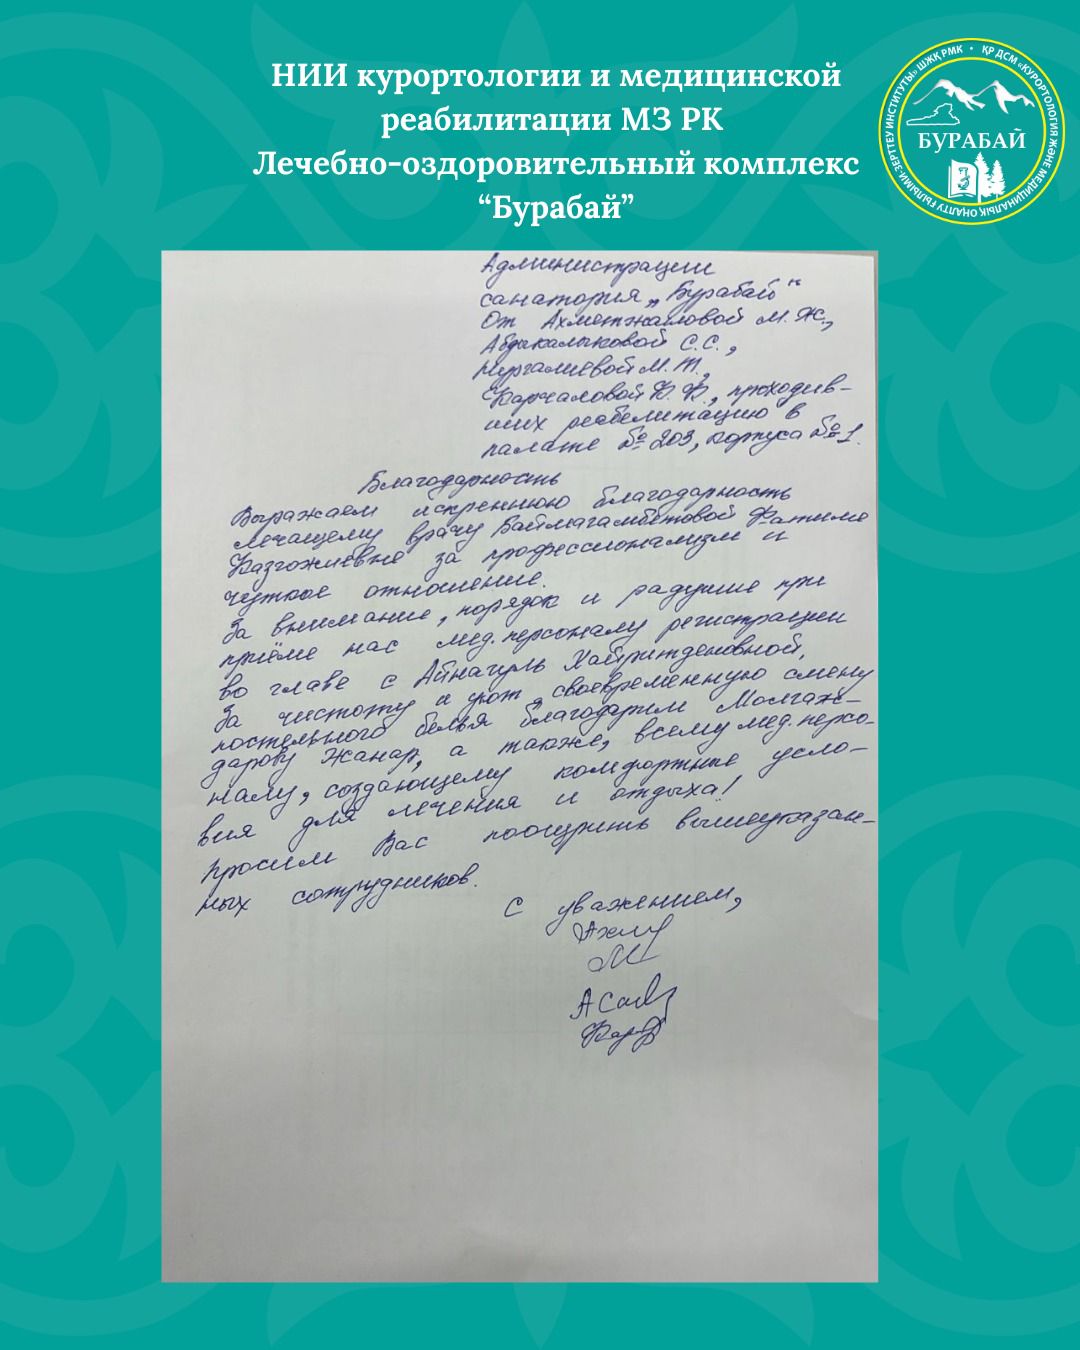 НИИ курортологии и медицинской
реабилитации МЗ РК
Лечебно-оздоровительный комплекс
“Бурабай”
ҚР ДСМ «КУРОРТОЛОГИЯ ЖӘНЕ МЕДИЦИНАЛЫҚ ОҢАЛТУ ҒЫЛЫМИ-ЗЕРТТЕУ ИНСТИТУТЫ» ШЖҚ РМК •
БУРАБАЙ
Администрации
санатория „Бурабай“
От Ахметжановой М.Ж.,
Абдикалыковой С.С.,
Нургалиевой М.Т.,
Карчаловой Ф.Ф., проходив-
ших реабелитацию в
палате № 203, корпуса № 1.
Благодарность
Выражаем искреннюю благодарность
лечащему врачу Баймагамбетовой Фатиме
Казгожиевне за профессионализм и
чуткое отношение.
За внимание, порядок и радушие при
приёме нас мед.персоналу регистрации
во главе с Айнагуль Хайритденовной,
За чистоту и уют, своевременную смену
постельного белья благодарим Молгаж-
дарову Жанар, а также, всему мед.персо-
налу, создающему комфортные усло-
вия для лечения и отдыха!
Просим Вас поощрить вышеуказан-
ных сотрудников.
С уважением,